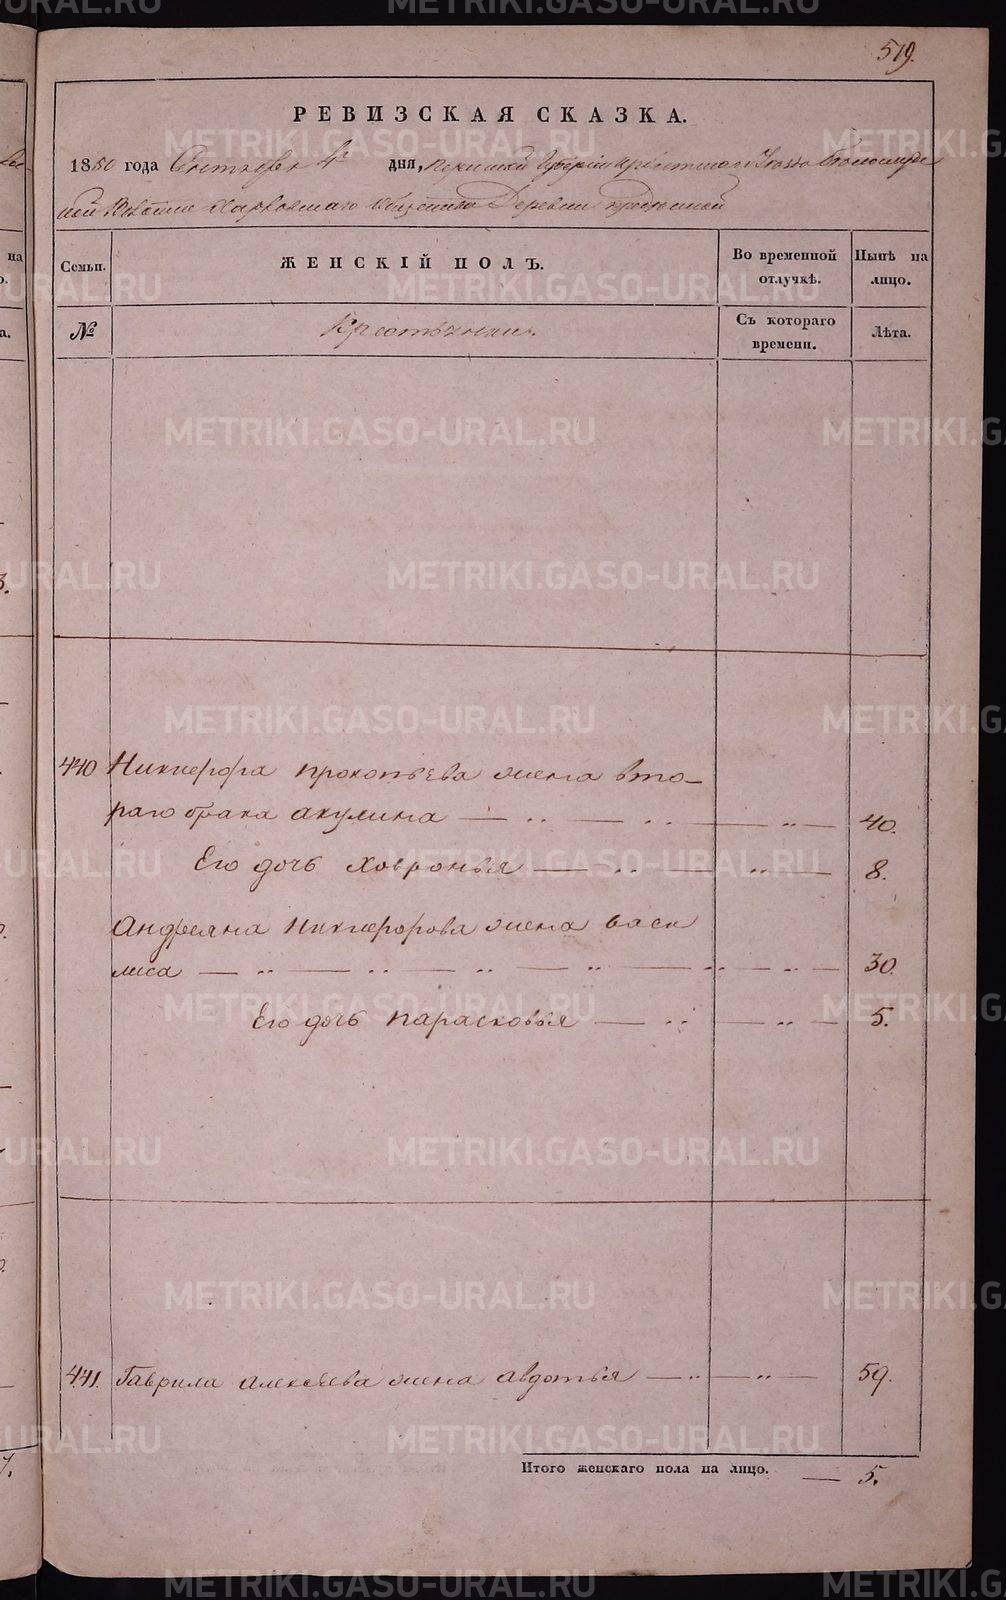 519.
РЕВИЗСКАЯ СКАЗКА.
1850 года Сентября 4 дня, Пермской Губернии Ирбитскаго Уезда
Волости Харловскаго общества Деревни
Семьи. ЖЕНСКІЙ ПОЛЪ. Во временной отлучкѣ. Нынѣ на лицо.
№ Крестьянки. Съ котораго времени. Лѣта.
440 Никифора Прокопьева жена вто-
раго брака акулина 40.
Его дочь Ховронья 8.
Андреяна Никифорова жена васи
лиса 30.
Его дочь Парасковья 5.
441. Гаврила Алексѣева жена авдотья 59.
Итого женскаго пола на лицо. 5.
METRIKI.GASO-URAL.RU